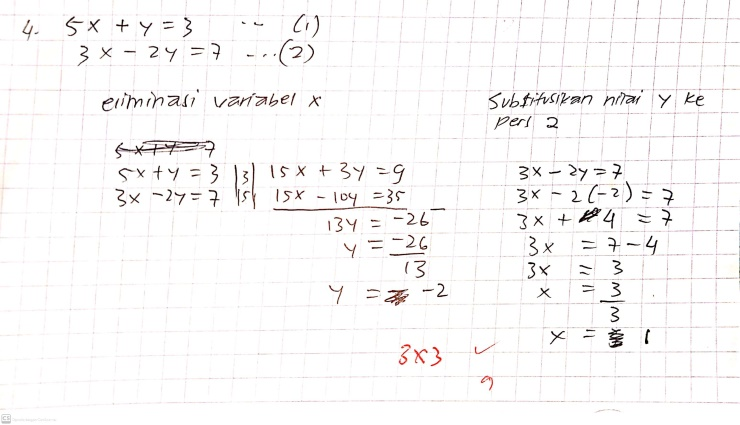 4. 5x + y = 3 ... (1)
3x - 2y = 7 ... (2)
eliminasi variabel x
5x + y = 3 |3| 15x + 3y = 9
3x - 2y = 7 |5| 15x - 10y = 35 -
13y = -26
y = -26
13
y = -2
Substitusikan nilai y ke
pers 2
3x - 2y = 7
3x - 2(-2) = 7
3x + 4 = 7
3x = 7 - 4
3x = 3
x = 3
3
x = 1
3x3 ✓
9
CS